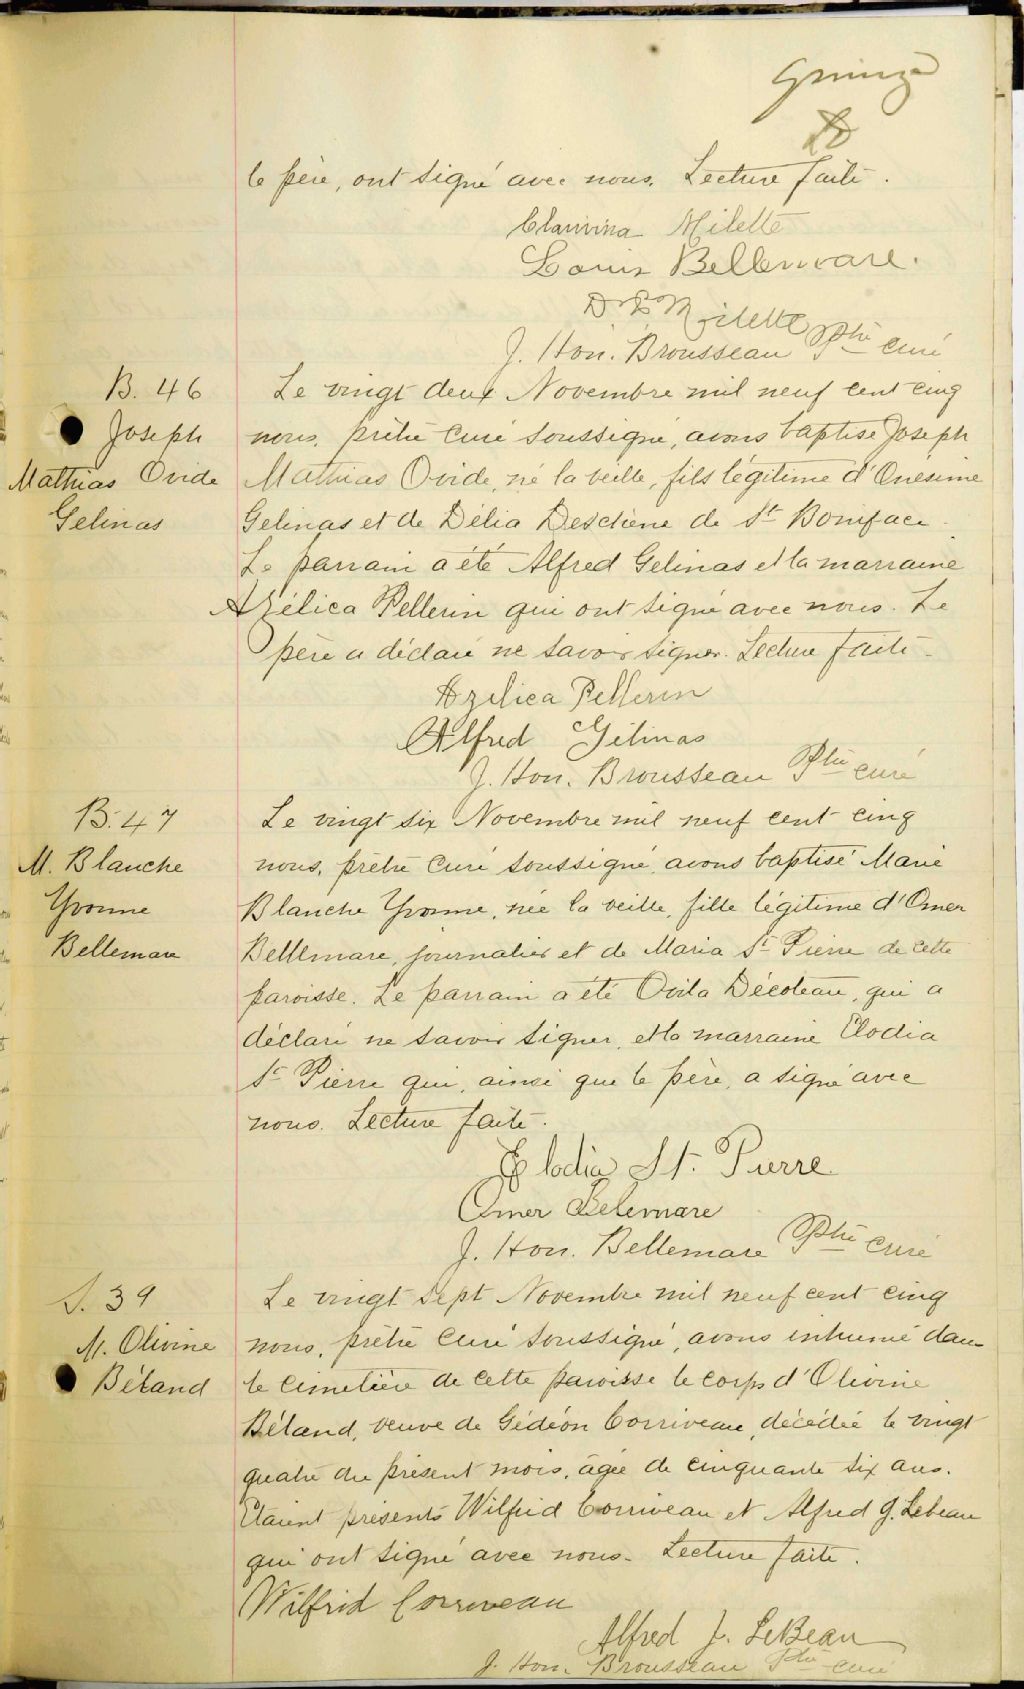 quinze
le père, ont signé avec nous. Lecture faite.
Clarinna Milette
Louis Bellemare.
D E Milette
J. Hon. Brousseau Ptre curé
B. 46
Joseph
Mathias Ovide
Gelinas
Le vingt deux Novembre mil neuf cent cinq
nous, prêtre curé soussigné, avons baptisé Joseph
Mathias Ovide, né la veille, fils légitime d'Onesime
Gelinas et de Délia Deschène de St Boniface.
Le parrain a été Alfred Gelinas et la marraine
Azélica Pellerin qui ont signé avec nous. Le
père a déclaré ne savoir signer. Lecture faite.
Azelica Pellerin
Alfred Gélinas
J. Hon. Brousseau Ptre curé
B. 47
M. Blanche
Yvonne
Bellemare
Le vingt six Novembre mil neuf cent cinq
nous, prêtre curé soussigné, avons baptisé Marie
Blanche Yvonne, née la veille, fille légitime d'Omer
Bellemare, journalier et de Maria St Pierre de cette
paroisse. Le parrain a été Ovila Décoteau, qui a
déclaré ne savoir signer, et la marraine Elodia
St Pierre qui, ainsi que le père, a signé avec
nous. Lecture faite.
Elodia St. Pierre
Omer Belemare
J. Hon. Bellemare Ptre curé
S. 39
M. Olivine
Béland
Le vingt sept Novembre mil neuf cent cinq
nous, prêtre curé soussigné, avons inhumé dans
le cimetière de cette paroisse le corps d'Olivine
Béland, veuve de Gédéon Corriveau, décédée le vingt
quatre du présent mois, âgée de cinquante six ans.
Etaient présents Wilfrid Corriveau et Alfred J. Lebeau
qui ont signé avec nous. Lecture faite.
Wilfrid Corriveau
Alfred J. LeBeau
J. Hon. Brousseau Ptre curé